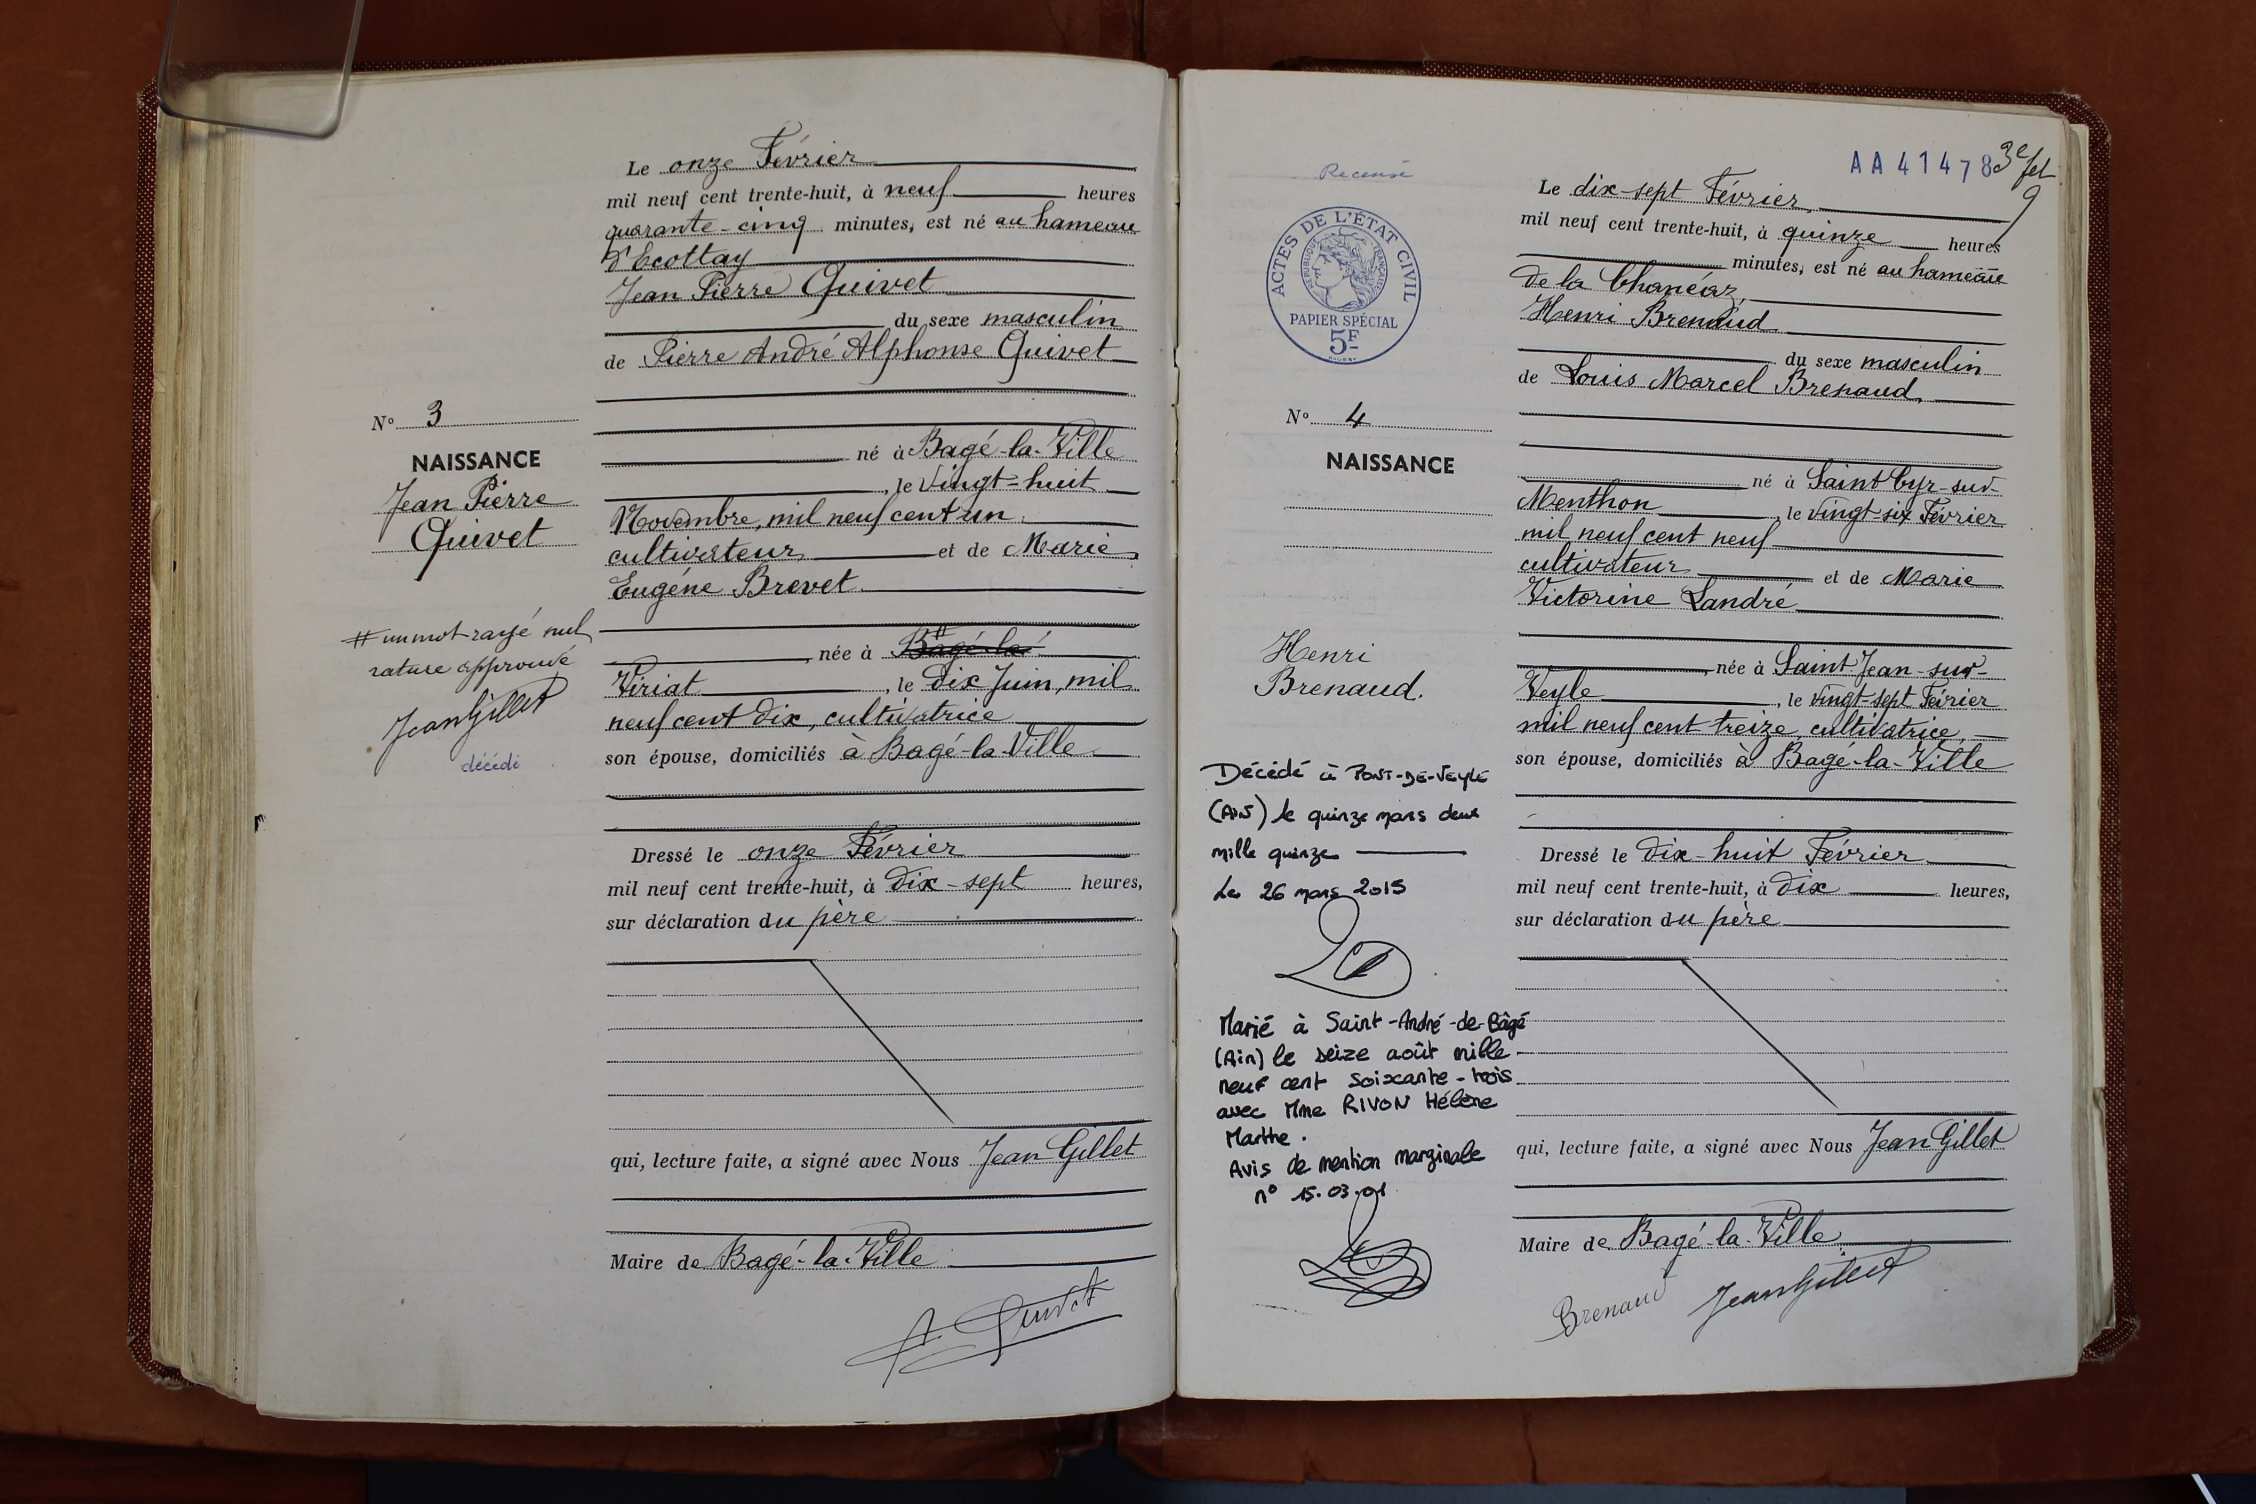 Le onze Février
mil neuf cent trente-huit, à neuf heures
quarante-cinq minutes, est né au hameau
d'Ecottay
Jean Pierre Quivet
du sexe masculin
de Pierre André Alphonse Quivet
né à Bagé-la-Ville
, le vingt-huit
Novembre, mil neuf cent un
cultivateur et de Marie
Eugéne Brevet
, née à Bagé-la
Viriat , le dix Juin, mil
neuf cent dix, cultivatrice
son épouse, domiciliés à Bagé-la-Ville
Dressé le onze Février
mil neuf cent trente-huit, à dix-sept heures,
sur déclaration du père
qui, lecture faite, a signé avec Nous Jean Gillet
Maire de Bagé-la-Ville
N° 3
NAISSANCE
Jean Pierre
Quivet
# un mot rayé nul
rature approuvé
Jean Gillet
décédé
A Quivet
AA41478
3e fet
9
Recensé
ACTES DE L'ÉTAT CIVIL
RÉPUBLIQUE FRANÇAISE
PAPIER SPÉCIAL
5F
N° 4
NAISSANCE
Henri
Brenaud.
Décédé à PONT-DE-VEYLE
(Ain) le quinze mars deux
mille quinze
Le 26 mars 2015
Marié à Saint-André-de-Bâgé
(Ain) le seize août mille
neuf cent soixante-trois
avec Mme RIVON Hélène
Marthe.
Avis de mention marginale
n° 15.03.01
Le dix-sept Février,
mil neuf cent trente-huit, à quinze heures
minutes, est né au hameau
de la Chanéaz,
Henri Brenaud
du sexe masculin
de Louis Marcel Brenaud,
né à Saint Cyr-sur-
Menthon , le vingt six Février
mil neuf cent neuf
cultivateur et de Marie
Victorine Landré
, née à Saint Jean-sur-
Veyle , le vingt-sept Février
mil neuf cent treize, cultivatrice,
son épouse, domiciliés à Bagé-la-Ville
Dressé le dix-huit Février
mil neuf cent trente-huit, à dix heures,
sur déclaration du père
qui, lecture faite, a signé avec Nous Jean Gillet
Maire de Bagé-la-Ville
Brenaud Jean Gillet